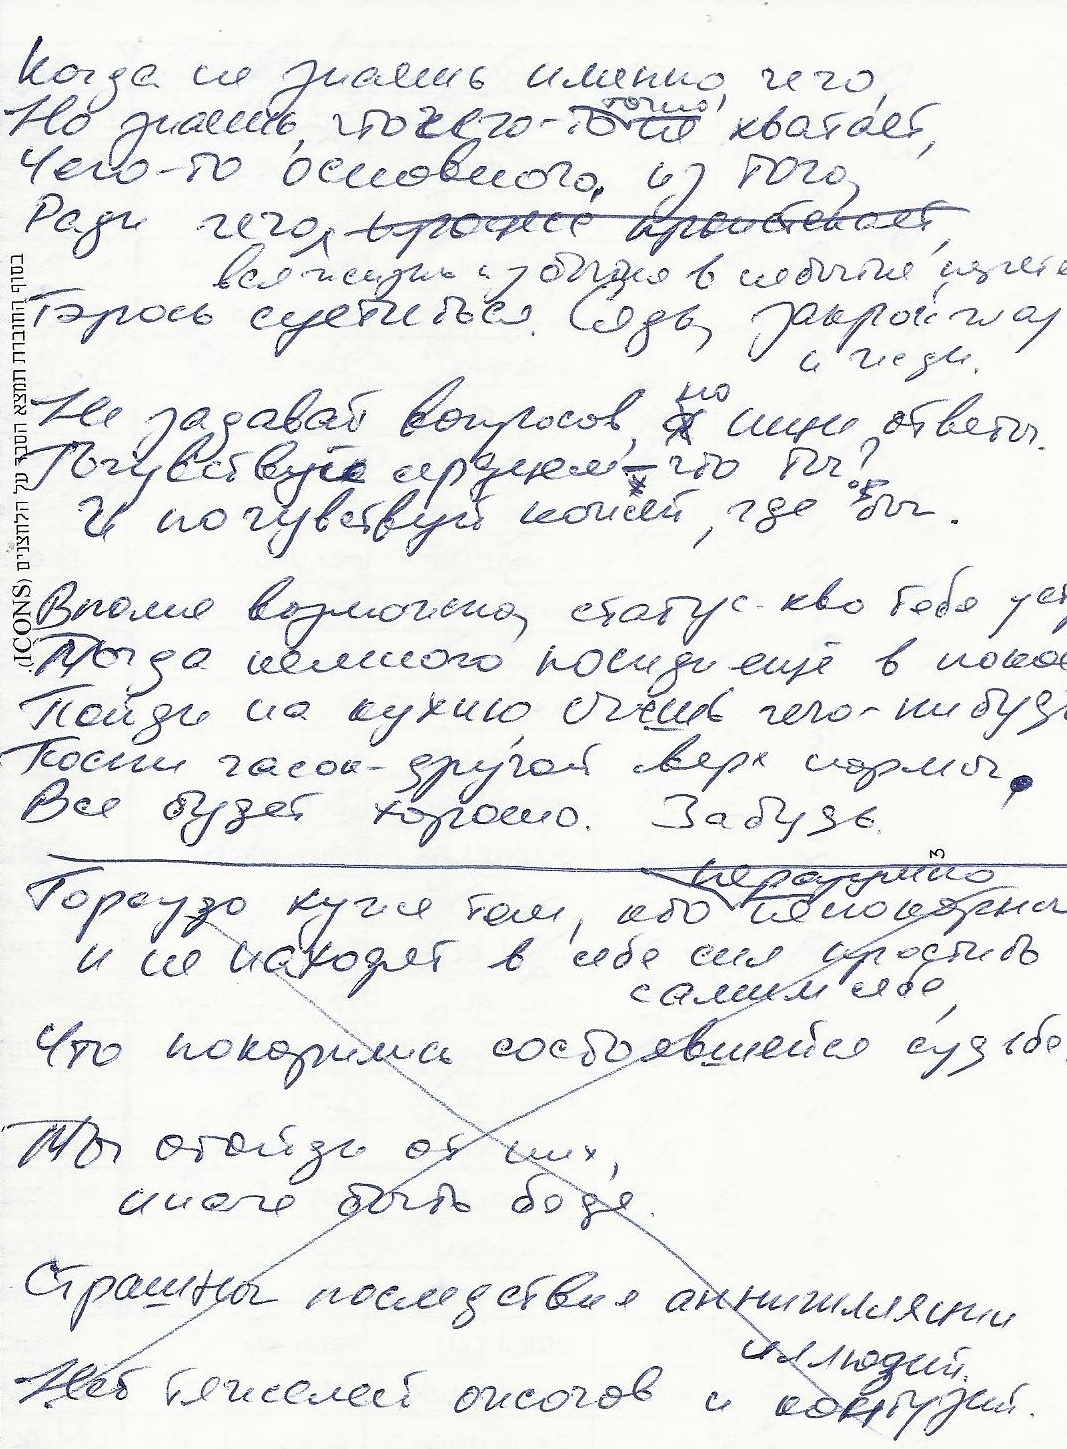 Когда не знаешь именно, чего,
Но знаешь, что чего-то точно не хватает,
Чего-то основного, из того,
Ради чего, прочее проистекает,
вся жизнь из бытия в небытие
Бросъ суетиться. Сядь, закрой глаз
и жди.
Не задавай вопросов, но ищи ответы.
Почувствуй сердцем – что ты?
И почувствуй кожей, где ты.
Вполне возможно, статус-кво тебя уст
Тогда немного посиди ещё в покое
Пойди на кухню, съешь чего-нибудь
Поспи часок-другой сверх нормы.
Все будет хорошо. Забудь.
неразумно
Гораздо хуже тем, кто непокорны
и не находят в себе сил простить
самим себе,
Что покорились состоявшейся судьбе.
Ты отойди от них,
иначе быть беде.
Страшны последствия аннигиляции
иллюзий.
Нет тяжелей ожогов и контузий.
בסוף החוברת תמצא הסבר על הלחצנים (ICONS).